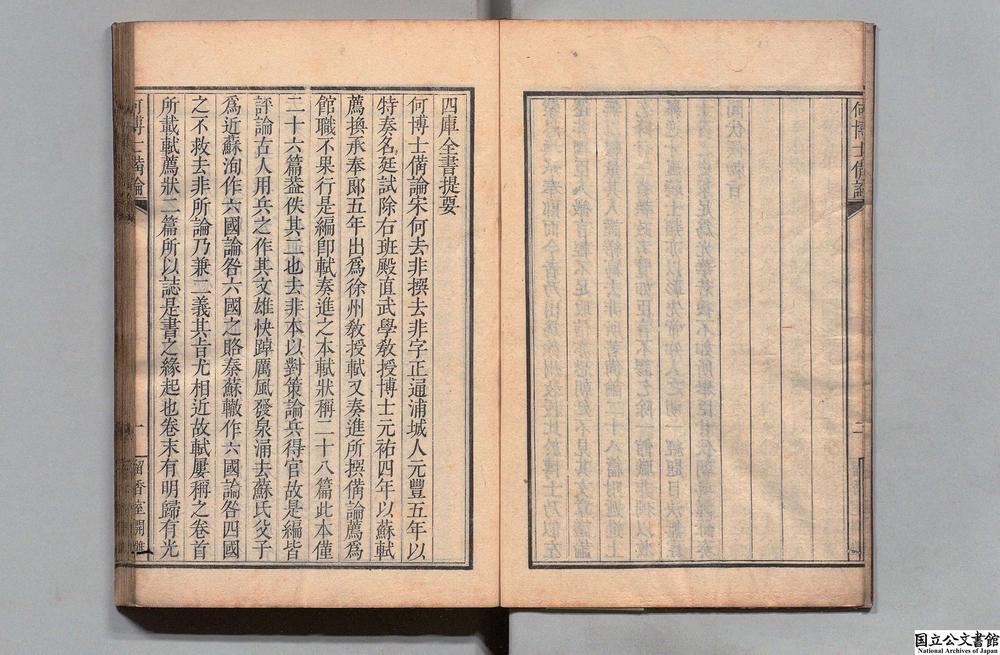 何博士備論
二
四庫全書提要
何博士備論宋何去非撰去非字正通浦城人元豐五年以
特奏名廷試除右班殿直武學敎授博士元祐四年以蘇軾
薦換承奉郎五年出爲徐州敎授軾又奏進所撰備論薦爲
館職不果行是編卽軾奏進之本軾狀稱二十八篇此本僅
二十六篇葢佚其二也去非本以對策論兵得官故是編皆
評論古人用兵之作其文雄快踔厲風發泉涌去蘇氏父子
爲近蘇洵作六國論咎六國之賂秦蘇轍作六國論咎四國
之不救去非所論乃兼二義其旨尤相近故軾屢稱之卷首
所載軾薦狀二篇所以誌是書之緣起也卷末有明歸有光
何博士備論
一
留香室開雕
国立公文書館
National Archives of Japan